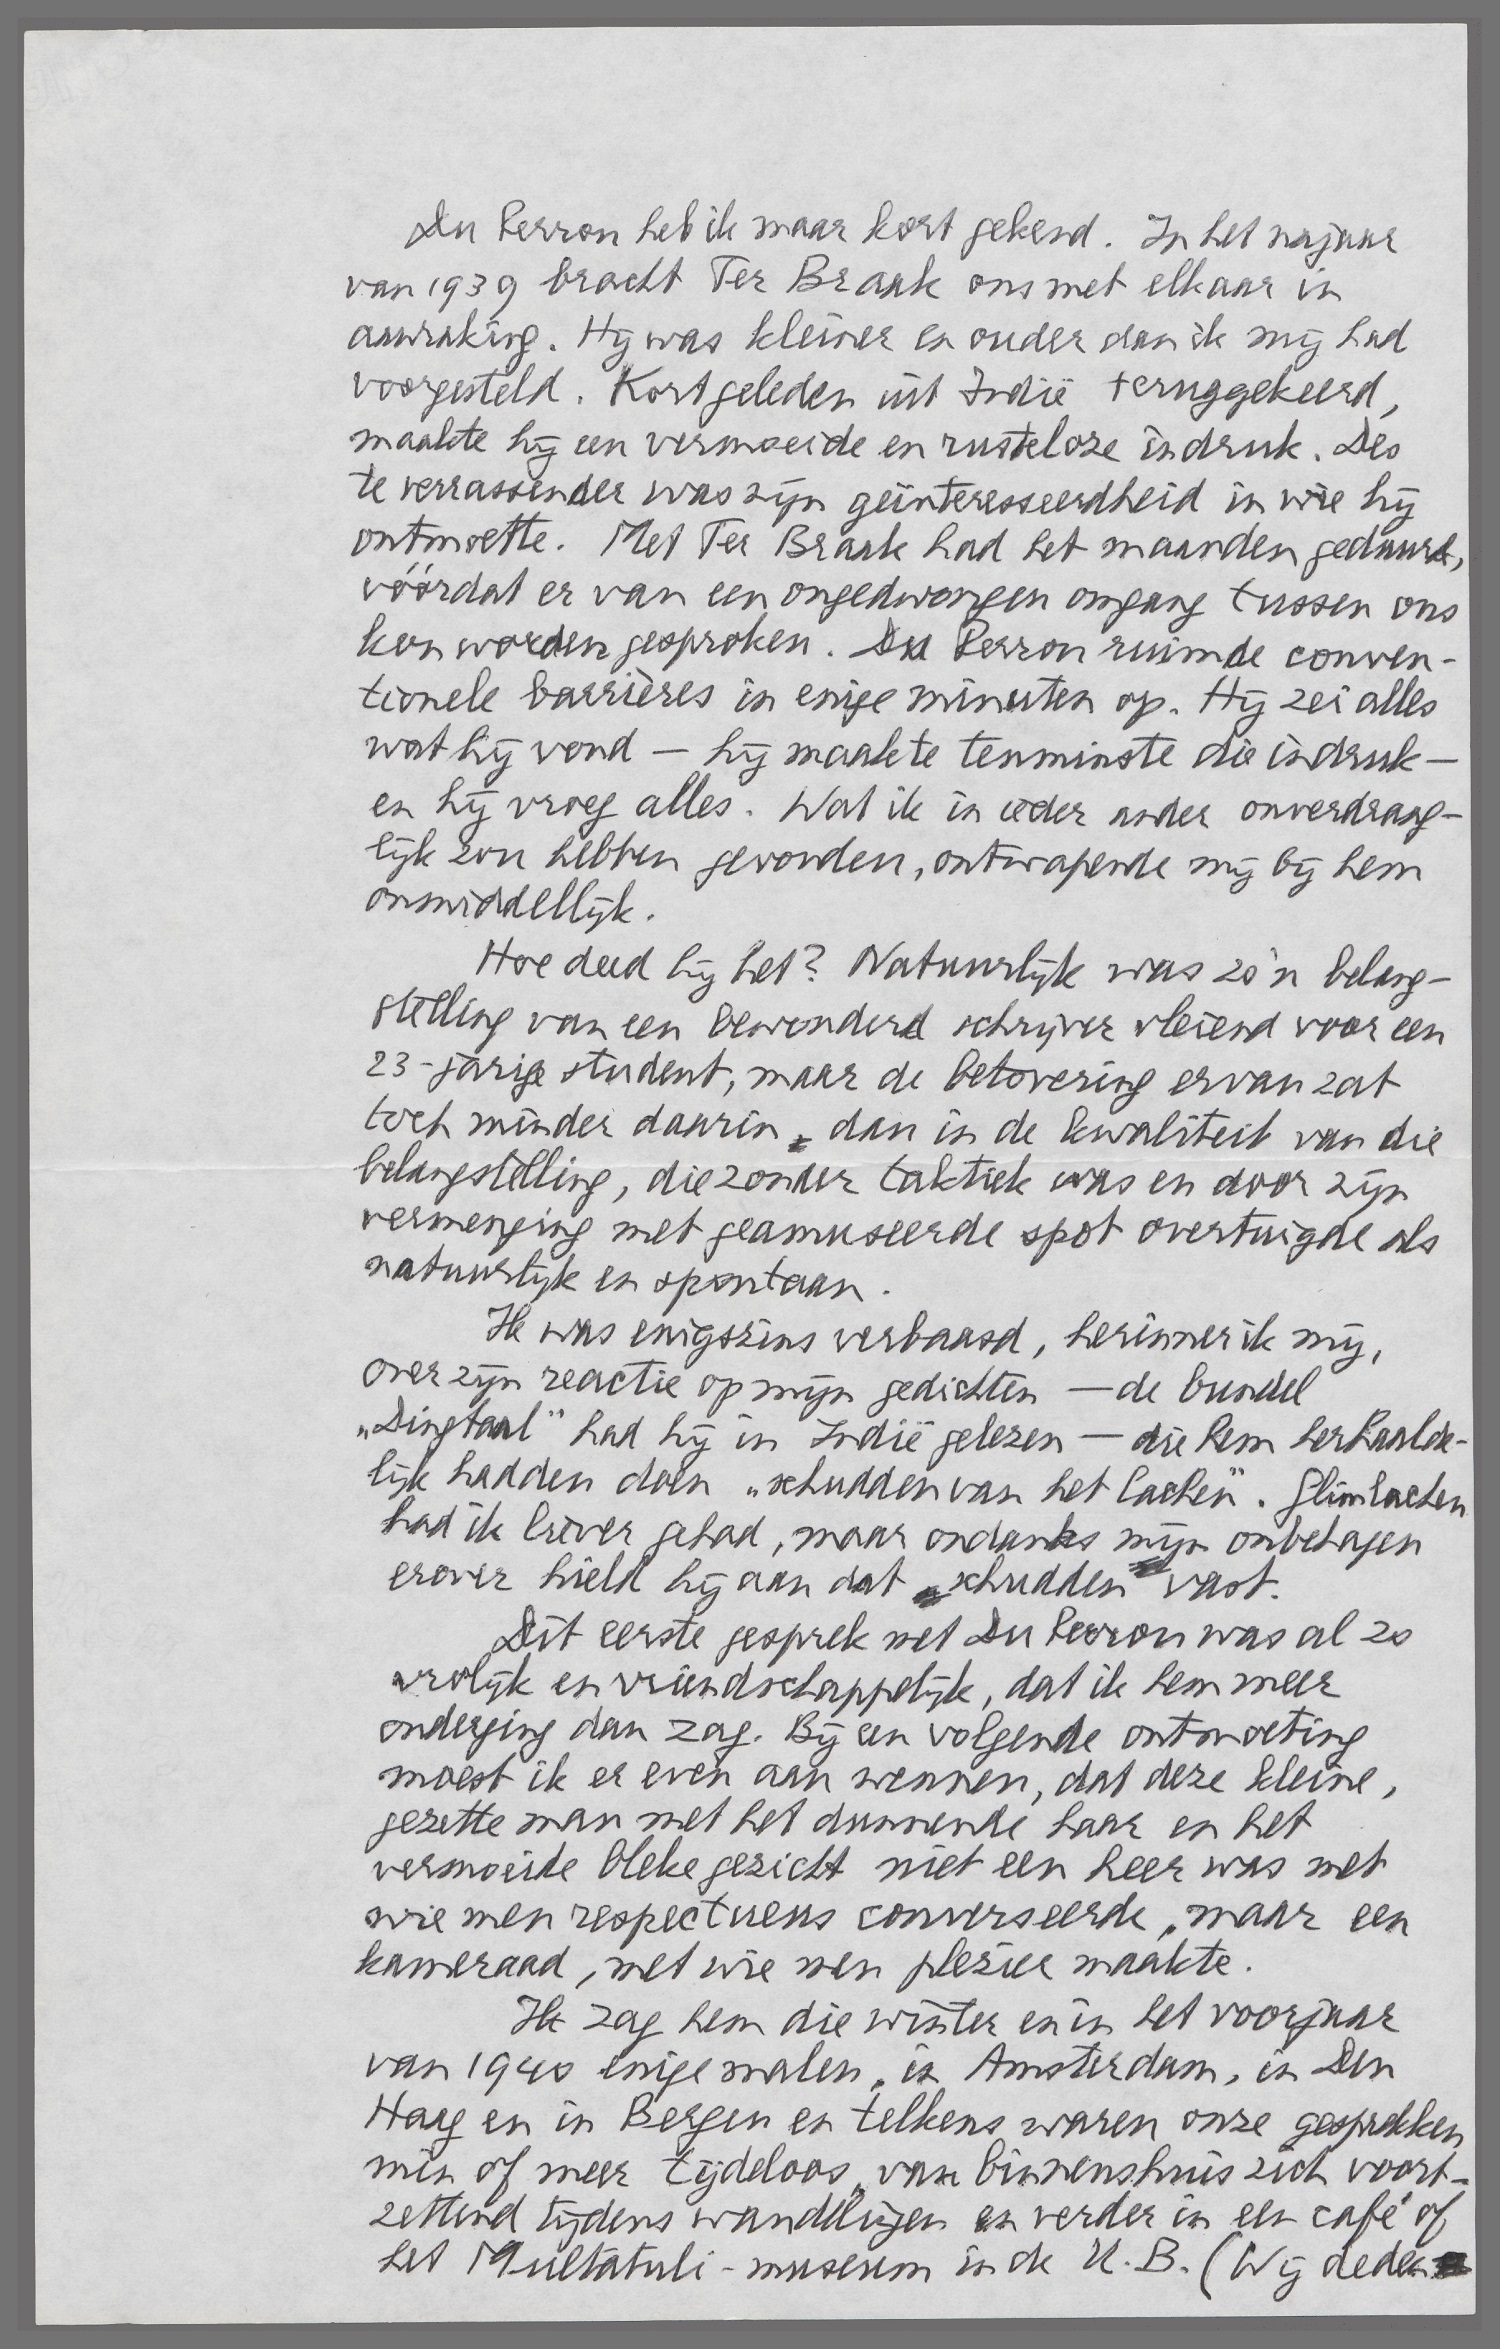 Du Perron heb ik maar kort gekend. In het najaar
van 1939 bracht Ter Braak ons met elkaar in
aanraking. Hij was kleiner en ouder dan ik mij had
voorgesteld. Kort geleden uit Indië teruggekeerd,
maakte hij een vermoeide en rusteloze indruk. Des
te verrassender was zijn geïnteresseerdheid in wie hij
ontmoette. Met Ter Braak had het maanden geduurd,
vóórdat er van een ongedwongen omgang tussen ons
kon worden gesproken. Du Perron ruimde conven-
tionele barrières in enige minuten op. Hij zei alles
wat hij vond — hij maakte tenminste die indruk —
en hij vroeg alles. Wat ik in ieder ander onverdraag-
lijk zou hebben gevonden, ontwapende mij bij hem
onmiddellijk.
Hoe deed hij het? Natuurlijk was zo'n belang-
stelling van een bewonderd schrijver vleiend voor een
23-jarige student, maar de betovering ervan zat
toch minder daarin, dan in de kwaliteit van die
belangstelling, die zonder taktiek was en door zijn
vermenging met geamuseerde spot overtuigde als
natuurlijk en spontaan.
Ik was enigszins verbaasd, herinner ik mij,
over zijn reactie op mijn gedichten — de bundel
„Dingtaal" had hij in Indië gelezen — die hem herhaalde-
lijk hadden doen „schudden van het lachen". Glimlachen
had ik liever gehad, maar ondanks mijn onbehagen
erover hield hij aan dat „schudden" vast.
Dit eerste gesprek met Du Perron was al zo
vrolijk en vriendschappelijk, dat ik hem meer
onderging dan zag. Bij een volgende ontmoeting
moest ik er even aan wennen, dat deze kleine,
gezette man met het dunnende haar en het
vermoeide bleke gezicht niet een heer was met
wie men respectueus converseerde, maar een
kameraad, met wie men plezier maakte.
Ik zag hem die winter en in het voorjaar
van 1940 enige malen, in Amsterdam, in Den
Haag en in Bergen en telkens waren onze gesprekken
min of meer tijdeloos, van binnenshuis zich voort-
zettend tijdens wandelingen en verder in een café of
het Multatuli-museum in de U.B. (Wij deden